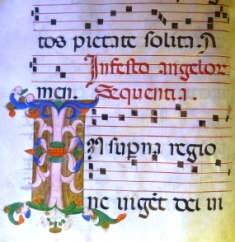 tos pietate solita. A
Infesto angelor
men. Sequentia.
IN supna regio
ne viget dei in